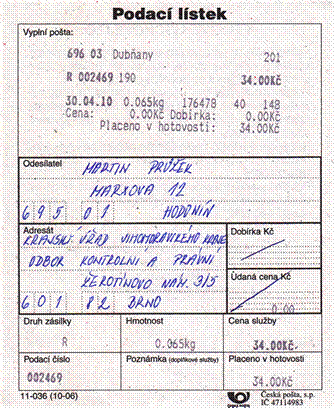 Podací lístek
Vyplní pošta:
696 03 Dubňany 201
R 002469 190 34.00Kč
30.04.10 0.065kg 176478 40 148
Cena: 0.00Kč Dobírka: 0.00Kč
Placeno v hotovosti: 34.00Kč
Odesílatel
MARTIN PRŮŽEK
MARXOVA 12
695 01 HODONÍN
Adresát
KRAJSKÝ ÚŘAD JIHOMORAVSKÉHO KRAJE
Dobírka Kč
ODBOR KONTROLNÍ A PRÁVNÍ
ŽEROTÍNOVO NÁM. 3/5
Udaná cena Kč
601 82 BRNO
0.00
Druh zásilky Hmotnost Cena služby
R 0.065kg 34.00Kč
Podací číslo Poznámka (doplňkové služby) Placeno v hotovosti
002469 34.00Kč
11-036 (10-06) Česká pošta, s.p.
IČ 47114983